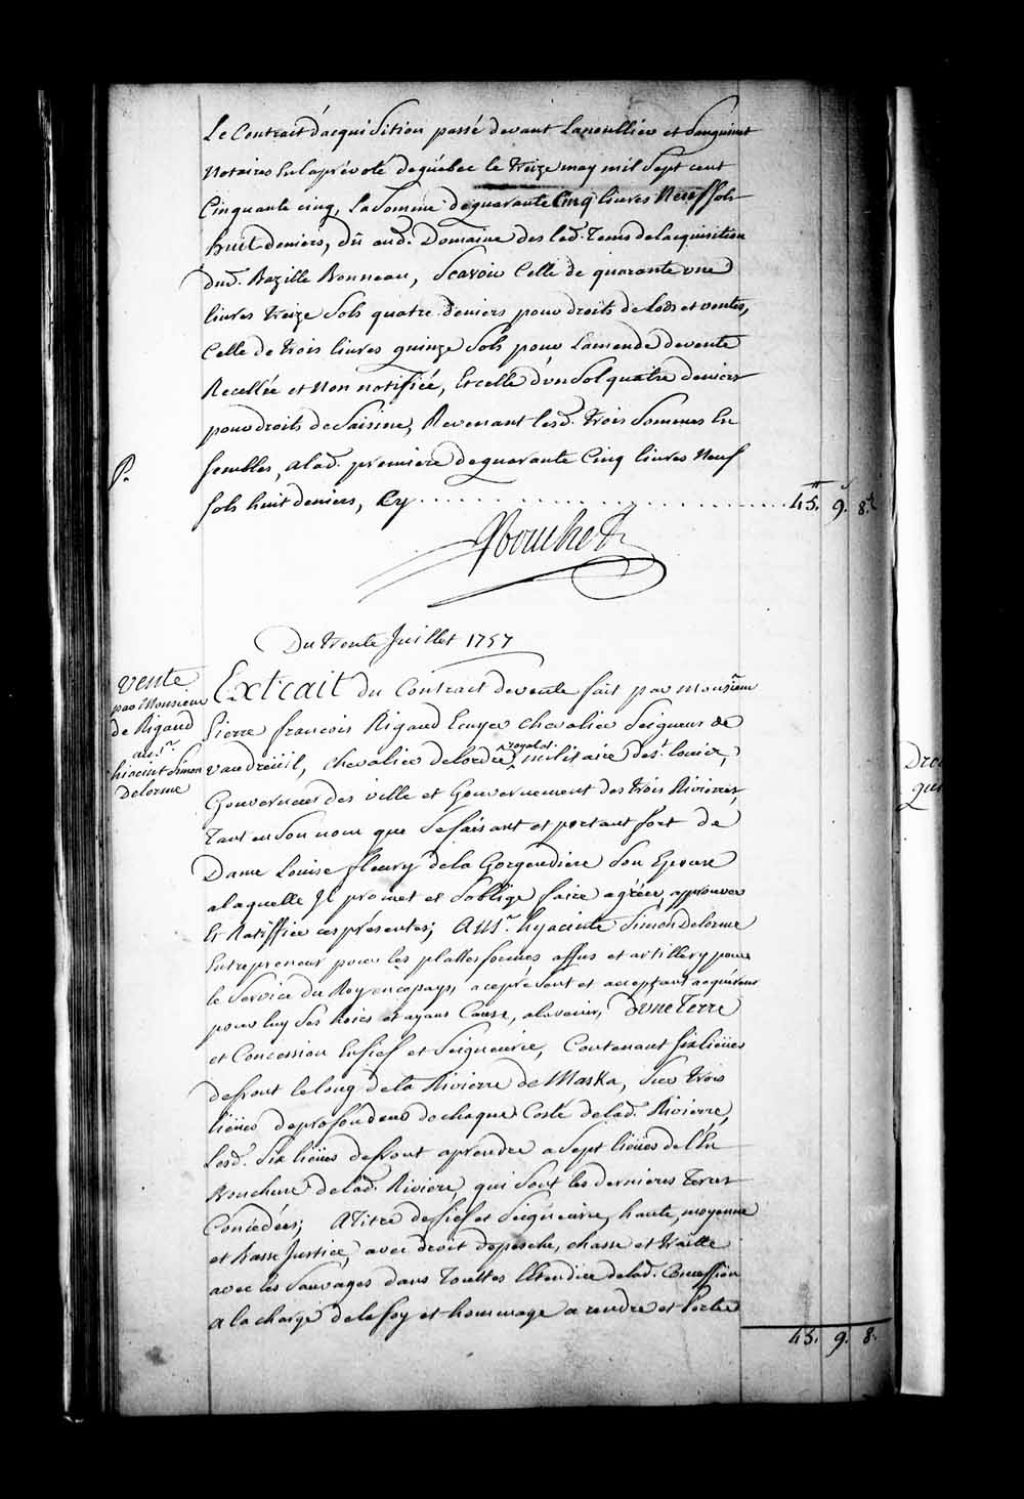 Le Contrait d'acquisition passé devant Lanoullier et Sanguinet
Notaires En la prévoté de québec le Treize may mil Sept cent
Cinquante cinq, La Somme de quarante Cinq livres Neuf Sols
huit deniers, dû aud. Domaine des lod. Tems de lacquisition
dud. Bazille Bonneau, Scavoir Celle de quarante une
livres treize Sols quatre deniers pour droits de Lods et ventes,
Celle de trois livres quinze Sols pour Lamende de vente
Recellée et Non notifiée, Et celle d'un Sol quatre deniers
pour droits de Saisine, Revenant lesd. Trois Sommes En
P.
sembles, a lad. premiere de quarante Cinq livres Neuf
sols huit deniers, Cy . . . . . . . . . . . . 45.# 9.s 8.d
Boucher
Du trente Juillet 1757
vente
par Monsieur
de Rigaud
au S.r
hiacint Simon
Delorme
Extrait du Contract de vente fait par monsieur
Pierre francois Rigaud Ecuyer Chevalier Seigneur de
Vaudreüil, chevalier de lordre royal et militaire de St. louis,
Gouverneur des ville et Gouvernement des trois Rivieres,
Tant en Son nom que Se faisant et portant fort de
Dame Louise fleury de la Gorgendiere Son Epouse
a laquelle Il promet et Soblige faire agréer, approuver
Et Ratiffier ces présentes; au S.r hyacinte Simon Delorme
Entrepreneur pour les plattes formes affus et artillery pour
le Service du Roy en ce pays, a ce présent et acceptant acquéreur
pour luy Ses hoirs et ayans Cause, a lavenir, D'une Terre
et Concession En fief et Seigneurie, Contenant six lieües
de front le long de la Riviere de Maska, Sur trois
lieües de profondeur de chaque Costé de lad. Riviere,
Lesd. Six lieües de front a prendre a Sept lieües de l'Em
Bouchure de lad. Riviere, qui Sont les dernieres Terres
Concedées; a Titre de fief et Seigneurie, haute, moyenne
et basse Justice, avec droit de pesche, chasse et traitte
avec les Sauvages dans Touttes l'Etendüe de lad. Concession
a la charge de la foy et hommage a rendre et Porter
45. 9. 8.